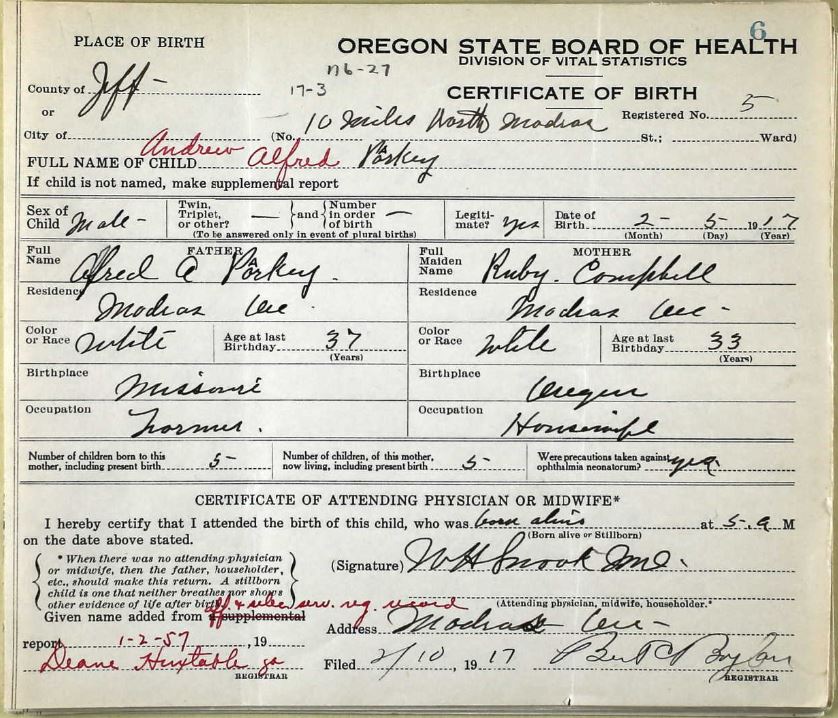 6
PLACE OF BIRTH
OREGON STATE BOARD OF HEALTH
DIVISION OF VITAL STATISTICS
County of Jeff-
17-3
CERTIFICATE OF BIRTH
or
City of (No. 10 miles North Madras St.; Ward)
Registered No. 5
FULL NAME OF CHILD Andrew Alfred Parkey
If child is not named, make supplemental report
Sex of Child Male-
Twin, Triplet, or other? — and Number in order of birth —
(To be answered only in event of plural births)
Legiti-mate? yes
Date of Birth 2- 5- 1917
(Month) (Day) (Year)
FATHER
Full Name Alfred A Parkey.
MOTHER
Full Maiden Name Ruby. Campbell
Residence Madras Ore.
Residence Madras Ore-
Color or Race White
Age at last Birthday 37
(Years)
Color or Race White
Age at last Birthday 33
(Years)
Birthplace Missouri
Birthplace Oregon
Occupation Farmer.
Occupation Housewife
Number of children born to this mother, including present birth 5-
Number of children, of this mother, now living, including present birth 5-
Were precautions taken against ophthalmia neonatorum? yes
CERTIFICATE OF ATTENDING PHYSICIAN OR MIDWIFE*
I hereby certify that I attended the birth of this child, who was born alive at 5-a M
(Born alive or Stillborn)
on the date above stated.
* When there was no attending physician
or midwife, then the father, householder,
etc., should make this return. A stillborn
child is one that neither breathes nor shows
other evidence of life after birth
(Signature) W H Snook M.D.
(Attending physician, midwife, householder.*
aff & selec serv. reg. record
Given name added from a supplemental
Address Madras Ore-
report 1-2-57, 19
Deane Huxtable
REGISTRAR
Filed 2/10, 1917
REGISTRAR